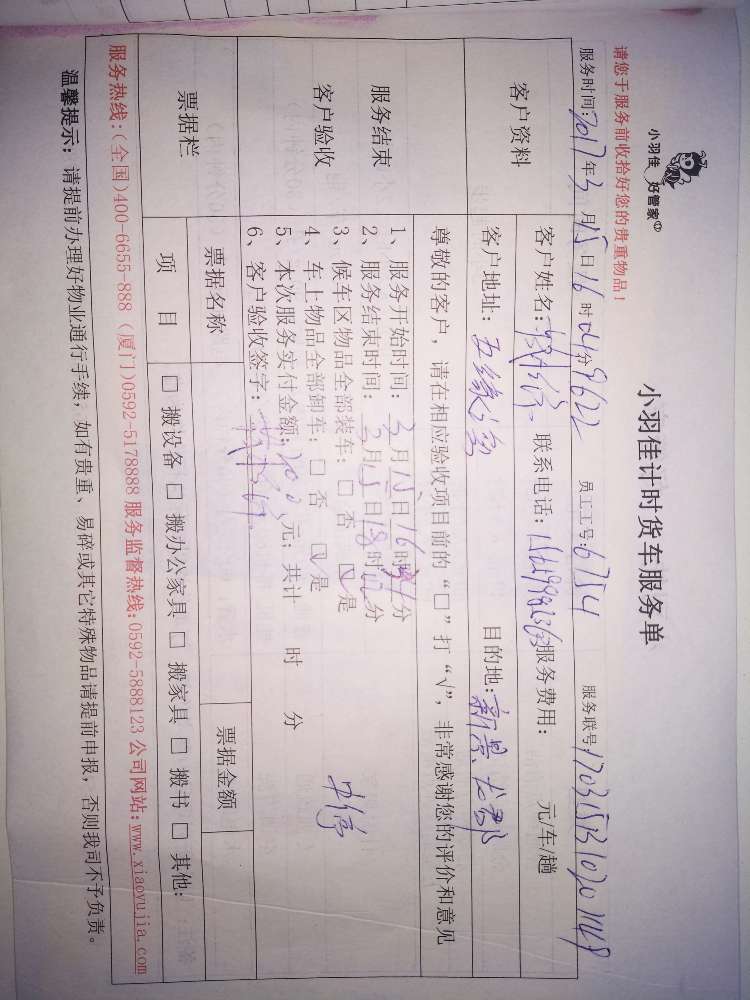 小羽佳 好管家
小羽佳计时货车服务单
请您于服务前收拾好您的贵重物品!
服务时间: 2017年3月15日16时 分 员工工号: 6754 服务联号
客户资料
客户姓名: 联系电话: 服务费用: 元/车/趟
客户地址: 五缘湾 目的地: 新景龙郡
服务结束
客户验收
尊敬的客户,请在相应验收项目前的“□”打“√”,非常感谢您的评价和意见
1、服务开始时间: 3月15日16时 分
2、服务结束时间: 3月15日18时 分
3、候车区物品全部装车: □ 否 ☑ 是
4、车上物品全部卸车: □ 否 ☑ 是
5、本次服务实付金额: 元; 共计 时 分
6、客户验收签字:
票据栏
票据名称 票据金额
项 目 □ 搬设备 □ 搬办公家具 □ 搬家具 □ 搬书 □ 其他:
服务热线:(全国)400-6655-888 (厦门)0592-5178888 服务监督热线:0592-5888123 公司网站:www.xiaoyujia.com
温馨提示: 请提前办理好物业通行手续,如有贵重、易碎或其它特殊物品请提前申报,否则我司不予负责。